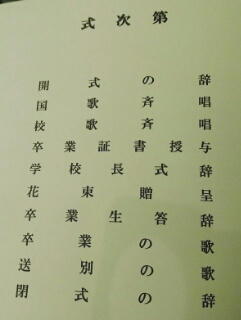 式次第
開式の辞
国歌斉唱
校歌斉唱
卒業証書授与
学校長式辞
花束贈呈
卒業生答辞
卒業の歌
送別の歌
閉式の辞